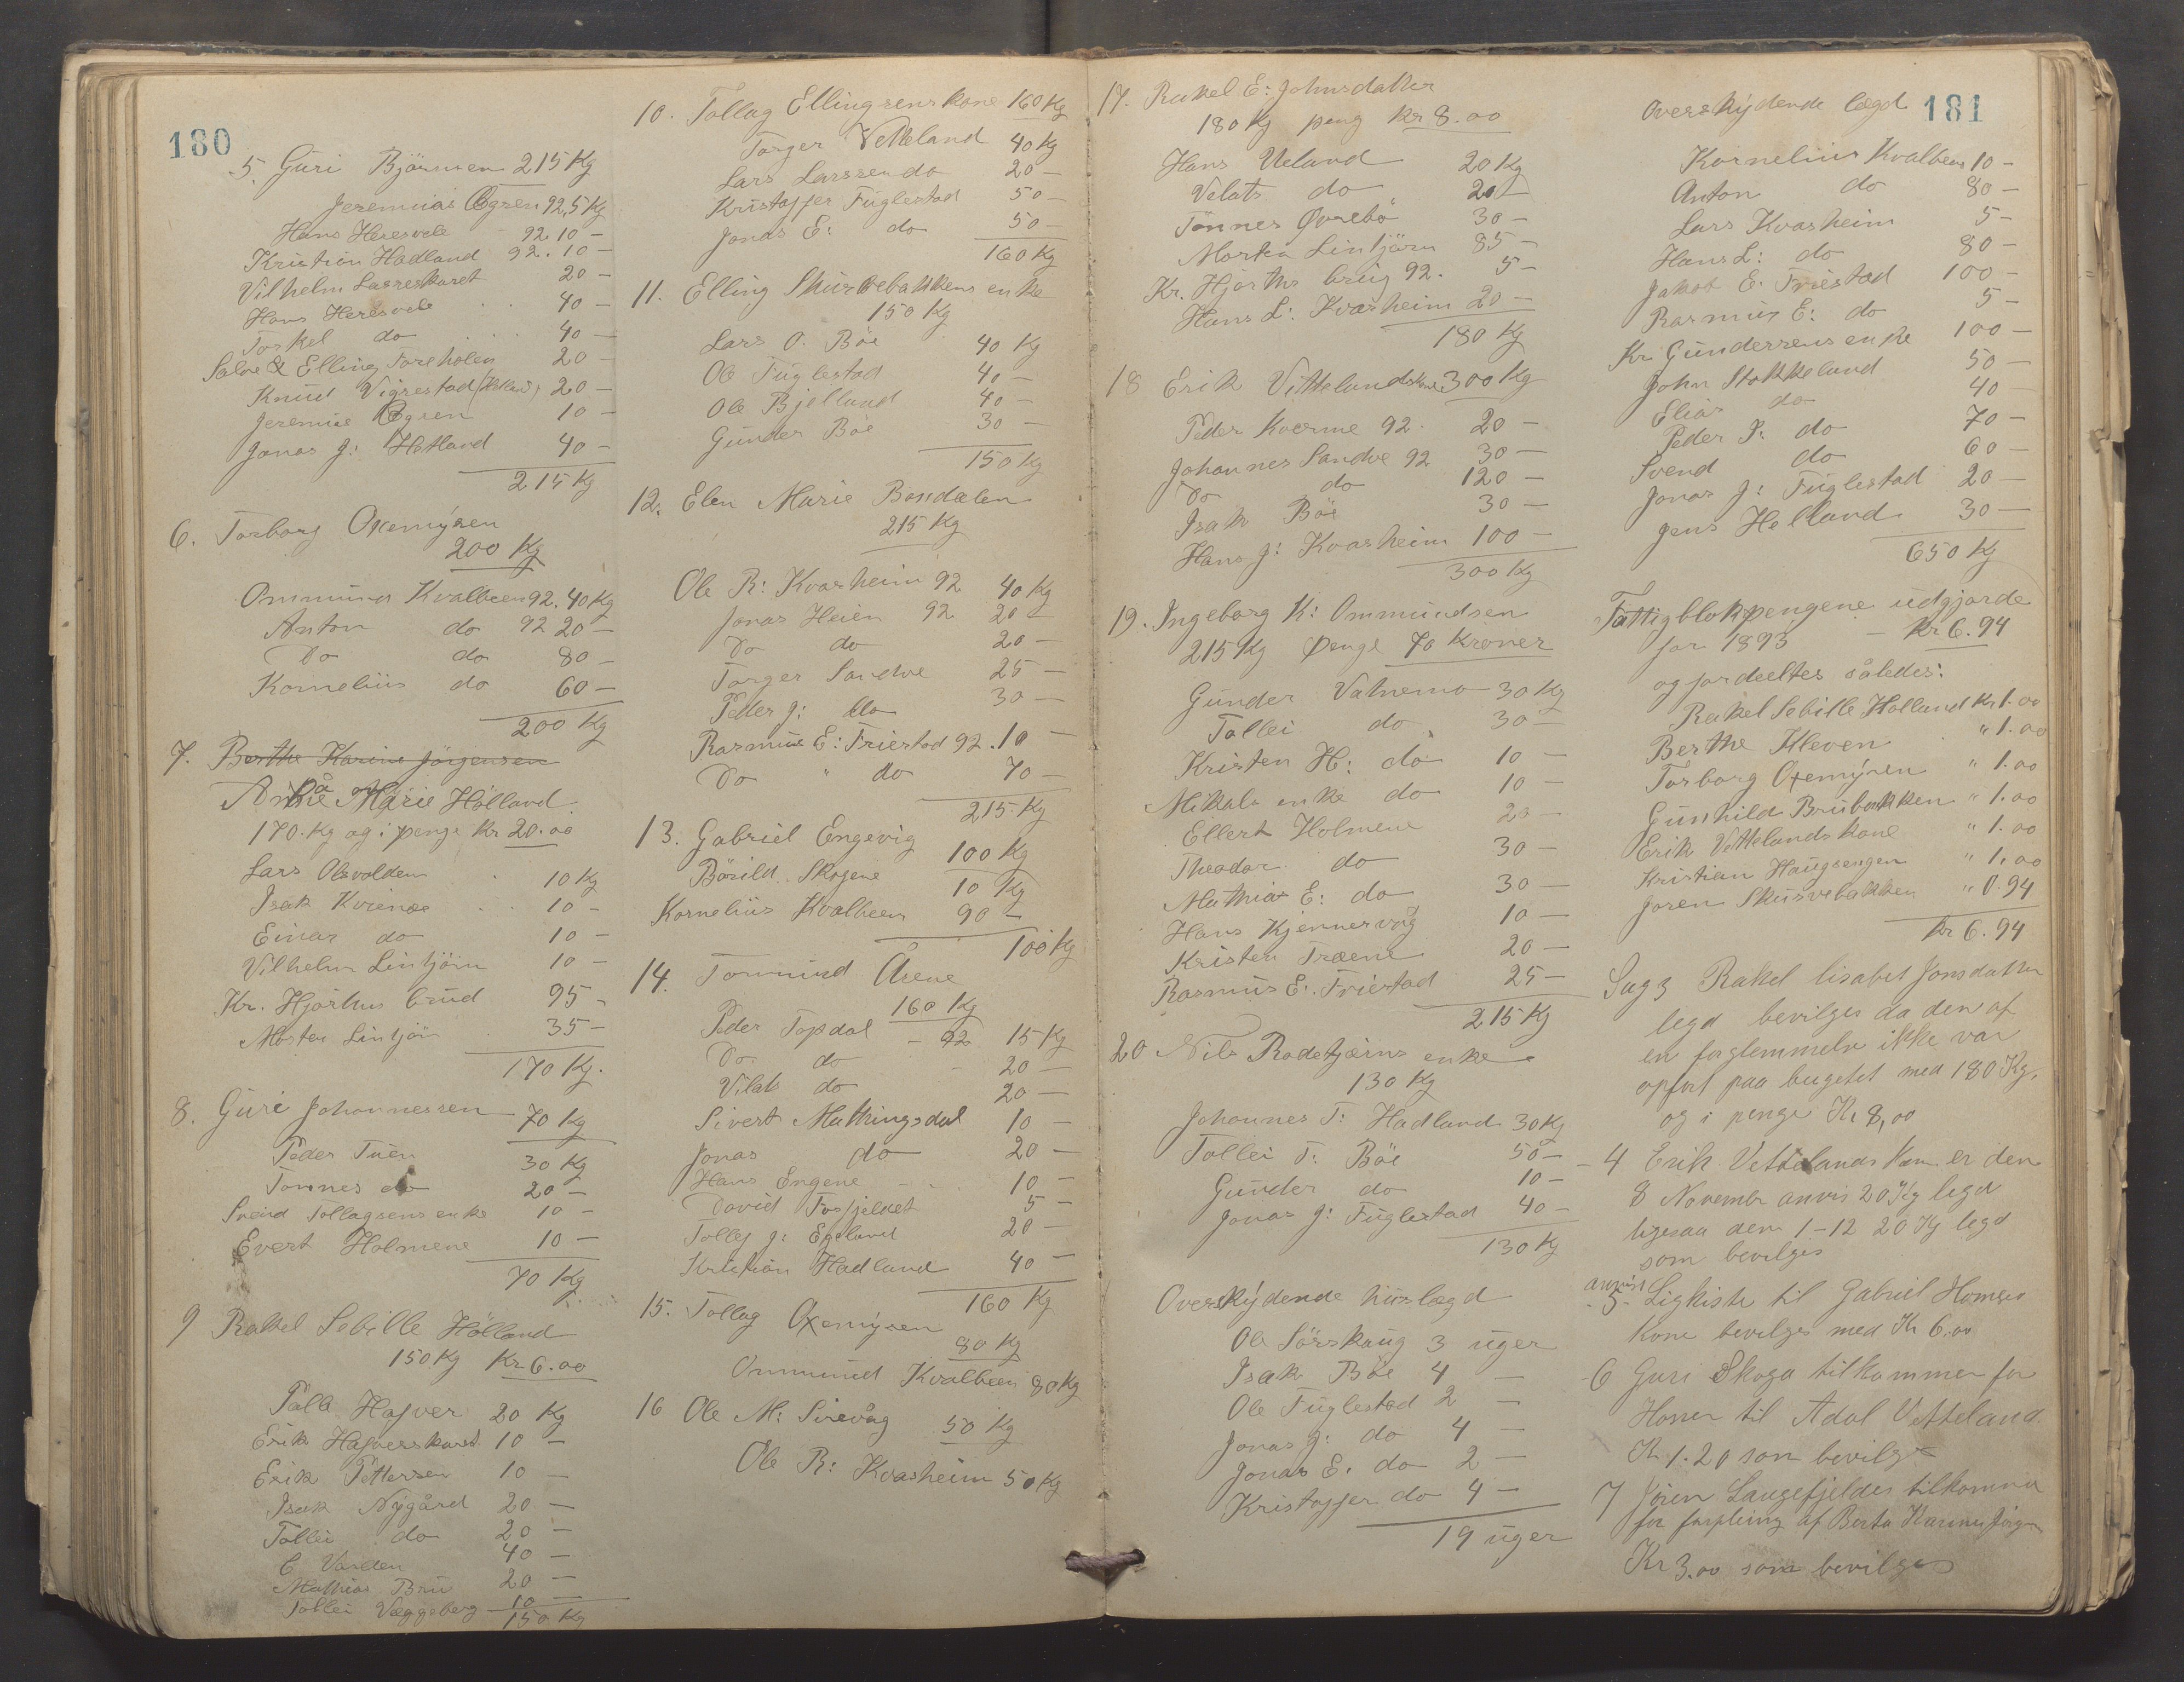 180
5. Guri Björnsen 215 Kg
Jeremias Øgren 92,5 Kg
Hans Heresvele 92 10 —
Kristian Hadland 92. 10 —
Vilhelm Lasreskaret 20 —
Hans Heresvele 40 —
Torkel do 40 —
Salve & Elling Foreholen 20 —
Knud Vigrestad 20 —
Jeremias Øgren 10 —
Jonas J: Hetland 40 —
215 Kg
6. Torborg Oxemyren
200 Kg
Ommund Kvalbeen 92. 40 Kg
Anton do 92 20 —
Do do 80 —
Kornelius do 60 —
200 Kg
7. Berthe Karine Jörgensen
Anne Marie Hölland
170. Kg og i penge Kr 20.00
Lars Olsvolden 10 Kg
Isak Kvienes 10 —
Einar do 10 —
Vilhelm Lintjörn 10 —
Kr. Hjorths brud 95 —
Morten Lintjörn 35 —
170 Kg.
8. Guri Johannessen
70 Kg
Peder Tuen 30 Kg
Tonnes do 20 —
Svend Tollagsens enke 10 —
Evert Holmene 10 —
70 Kg
9 Rakel Sebille Hölland
150 Kg Kr 6.00
Palle Hafver 20 Kg
Erik Hafverskaret 10 —
Erik Pettersen 10 —
Isak Nygård 20 —
Tollei do 20 —
E Varden 40 —
Mathias Bru 20 —
Tollei Væggeberg 10 —
150 Kg
10. Tollag Ellingsens kone 160 Kg
Torger Vetteland 40 Kg
Lars Larssen do 20 —
Kristoffer Fuglestad 50 —
Jonas E: do 50 —
160 Kg
11. Elling Skurvebakkens enke
150 Kg
Lars O. Böe 40 Kg
Ole Fuglestad 40 —
Ole Bjelland 40 —
Gunder Böe 30 —
150 Kg
12. Elen Marie Bondalen
215 Kg
Ole R: Kvasheim 92 40 Kg
Jonas Heien 92 20 —
Do do 20 —
Torger Sandve 25 —
Peder J: do 30 —
Rasmus E: Friestad 92. 10 —
Do " do 70 —
215 Kg
13. Gabriel Engevig
100 Kg
Börild Skogene 10 Kg
Kornelius Kvalbeen 90 —
100 Kg
14. Tormund Åsene
160 Kg
Peder Topdal — 92 15 Kg
Do do — 20 —
Vilat do 20 —
Sivert Mathingsdal 10 —
Jonas do 20 —
Hans Engene 10 —
David Fosfjeldet 5 —
Tolley J: Egeland 20 —
Kristian Hadland 40 —
160 Kg
15. Tollag Oxemyren
80 Kg
Ommund Kvalbeen 80 Kg
16 Ole M: Sirevåg 50 Kg
Ole R: Kvasheim 50 Kg
17. Rakel E: Johnsdatter
180 Kg peng Kr 8.00
Hans Ueland 20 Kg
Velats do 20 —
Tönnes Øvrebö 30 —
Morten Lintjörn 85 —
Kr. Hjorths brug 92. 5 —
Hans L: Kvasheim 20 —
180 Kg
18 Erik Vettelands kone 300 Kg
Peder Kverme 92. 20 —
Johannes Sandve 92 30 —
Do do 120 —
Isak Böe 30 —
Hans J: Kvasheim 100 —
300 Kg
19. Ingeborg K: Ommundsen
215 Kg Penge 70 Kroner
Gunder Vatnemo 30 Kg
Tollei do 30 —
Kristen H: do 10 —
Mikals enke do 10 —
Ellert Holmene 20 —
Theodor do 30 —
Mathias E: do 30 —
Hans Kjennervåg 10 —
Kristen Træene 20 —
Rasmus E: Friestad 25 —
215 Kg
20 Nils Rodetjørns enke
130 Kg
Johannes T: Hadland 30 Kg
Tollei T: Böe 50 —
Gunder do 10 —
Jonas J: Fuglestad 40 —
130 Kg
Overskydende huslægd
Ole Sörskoug 3 uger
Isak Böe 4 —
Ole Fuglestad 2 —
Jonas J: do 4 —
Jonas E. do 2 —
Kristoffer do 4 —
19 uger
181
Overskydende lægd
Kornelius Kvalbeen 10 —
Anton do 80 —
Lars Kvasheim 5 —
Hans L: do 80 —
Jakob E. Friestad 100 —
Rasmus E: do 5 —
Kr. Gunderssens enke 100 —
John Stokkeland 50 —
Elias do 40
Peder T: do 70 —
Svend do 60 —
Jonas J: Fuglestad 20 —
Jens Helland 30 —
650 Kg
Fattigblokpengene udgjorde
for 1893 — Kr 6.94
og fordeeltes således:
Rakel Sebille Hölland Kr 1.00
Berthe Kleven " 1.00
Torborg Oxemyren " 1.00
Gunhild Brubakken " 1.00
Erik Vettelands kone " 1.00
Kristian Haugsengen " 1.00
Joren Skurvebakken " 0.94
Kr 6.94
Sag 3 Rakel lisabet Jonsdatter
legd bevilges da den af
en forglemmelse ikke var
opført paa bugetet med 180 Kg.
og i penge Kr 8,00
- 4 Erik Vettelands Kone er den
8 November anvis 20 Kg legd
ligesaa den 1-12 20 Kg legd
som bevilges
anvist
- 5 - Ligkiste til Gabriel Homses
Kone bevilges med Kr 6.00
- 6 Guri Skoga tilkommer for
Hoser til Adol Vetteland
Kr 1.20 som bevilges
7 Jören Laugefjeldes tilkommer
for forpleing af Berta Karine Jörg
Kr 3.00 som bevilges